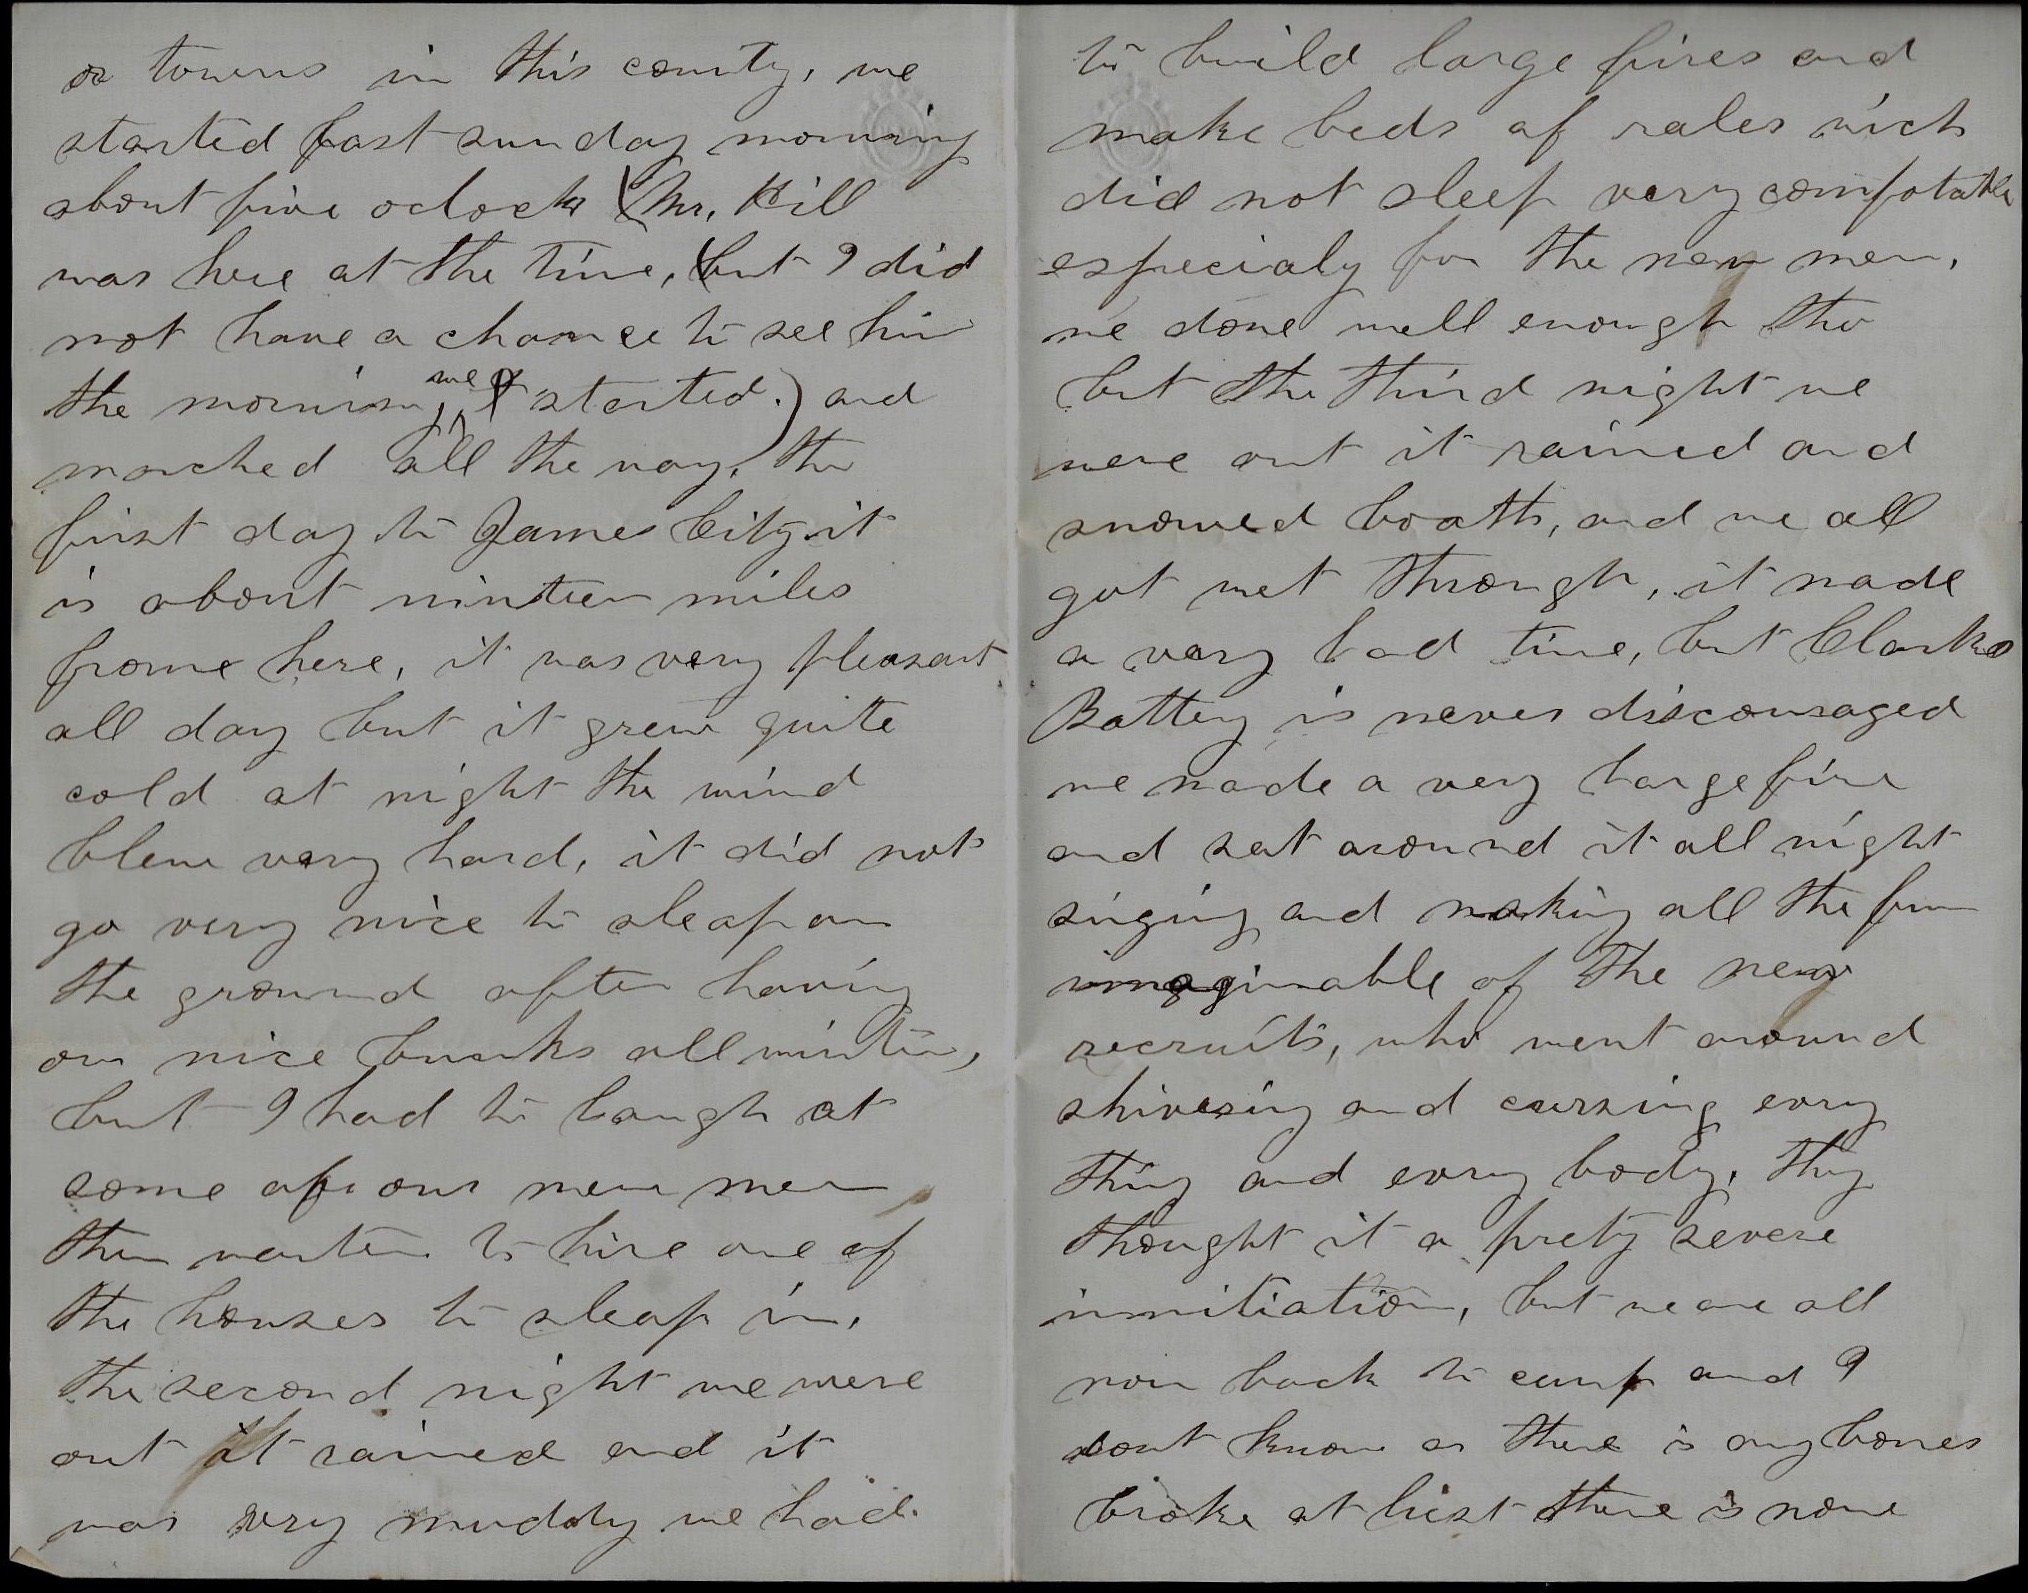 or towns in this county, we
started last sunday morning
about five oclock (Mr. Hill
was here at the time, but I did
not have a chance to see him
the morning we started.) and
marched all the way, the
first day to James City it
is about ninteen miles
frome here, it was very pleasant
all day but it grew quite
cold at night the wind
blew very hard, it did not
go very nice to sleap on
the ground after having
our nice bunks all winter,
but I had to laugh at
some of our new men
them wanten to hire one of
the houses to sleap in,
the second night we were
out it rained and it
was very muddy we had
to build large fires and
make beds of rales wich
did not sleep very comfotable
especialy for the new men,
we done well enough tho
but the third night we
were out it rained and
snowed boath, and we all
got wet through, it made
a very bad time, but Clarks
Battery is never discouraged
we made a very large fire
and sat around it all night
singing and making all the fun
imaginable of the new
recruits, who went around
shivering and cursing evry
thing and evry body, they
thought it a prety severe
innitiation, but we are all
now back to camp and I
dont know as there is any bones
broke at least there is none